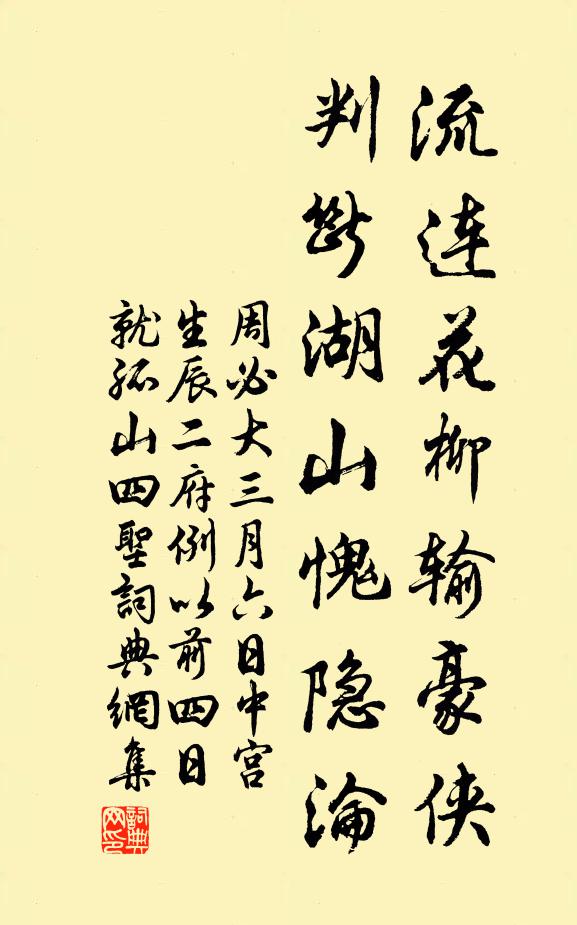 流连花柳输豪侠
判断湖山愧隐沦
周必大三月六日中宫
生辰二府例以前四日
就孤山四聖詞典網集
詞典
网印